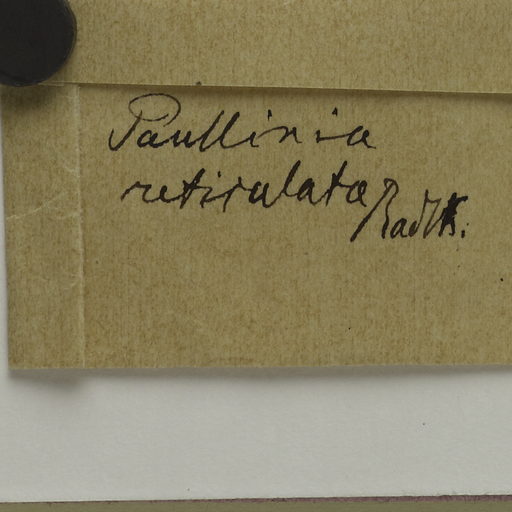 Paullinia
reticulata Radlk.